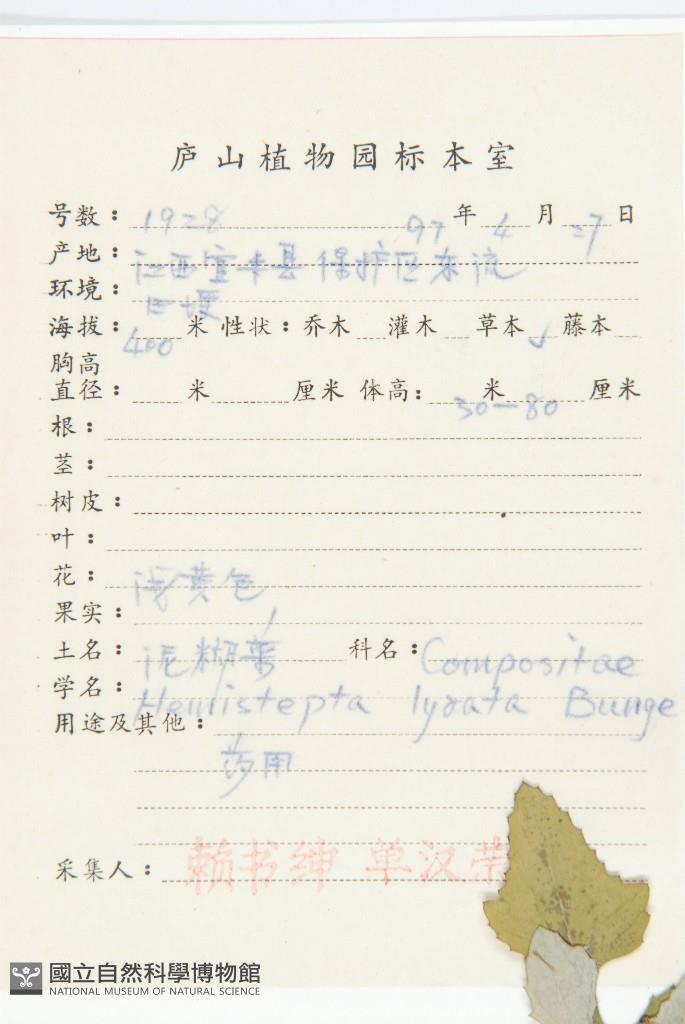 庐山植物园标本室
号数：1928 97年4月27日
产地：江西宜丰县保护区东流
环境：田埂
海拔：400米 性状：乔木 灌木 草本✓ 藤本
胸高
直径： 米 厘米 体高： 米 30—80 厘米
根：
茎：
树皮：
叶：
花：浅黄色
果实：
土名：泥糊菜 科名：Compositae
学名：Hemistepta lyrata Bunge
用途及其他：
药用
采集人：赖书绅 单汉荣
國立自然科學博物館
NATIONAL MUSEUM OF NATURAL SCIENCE